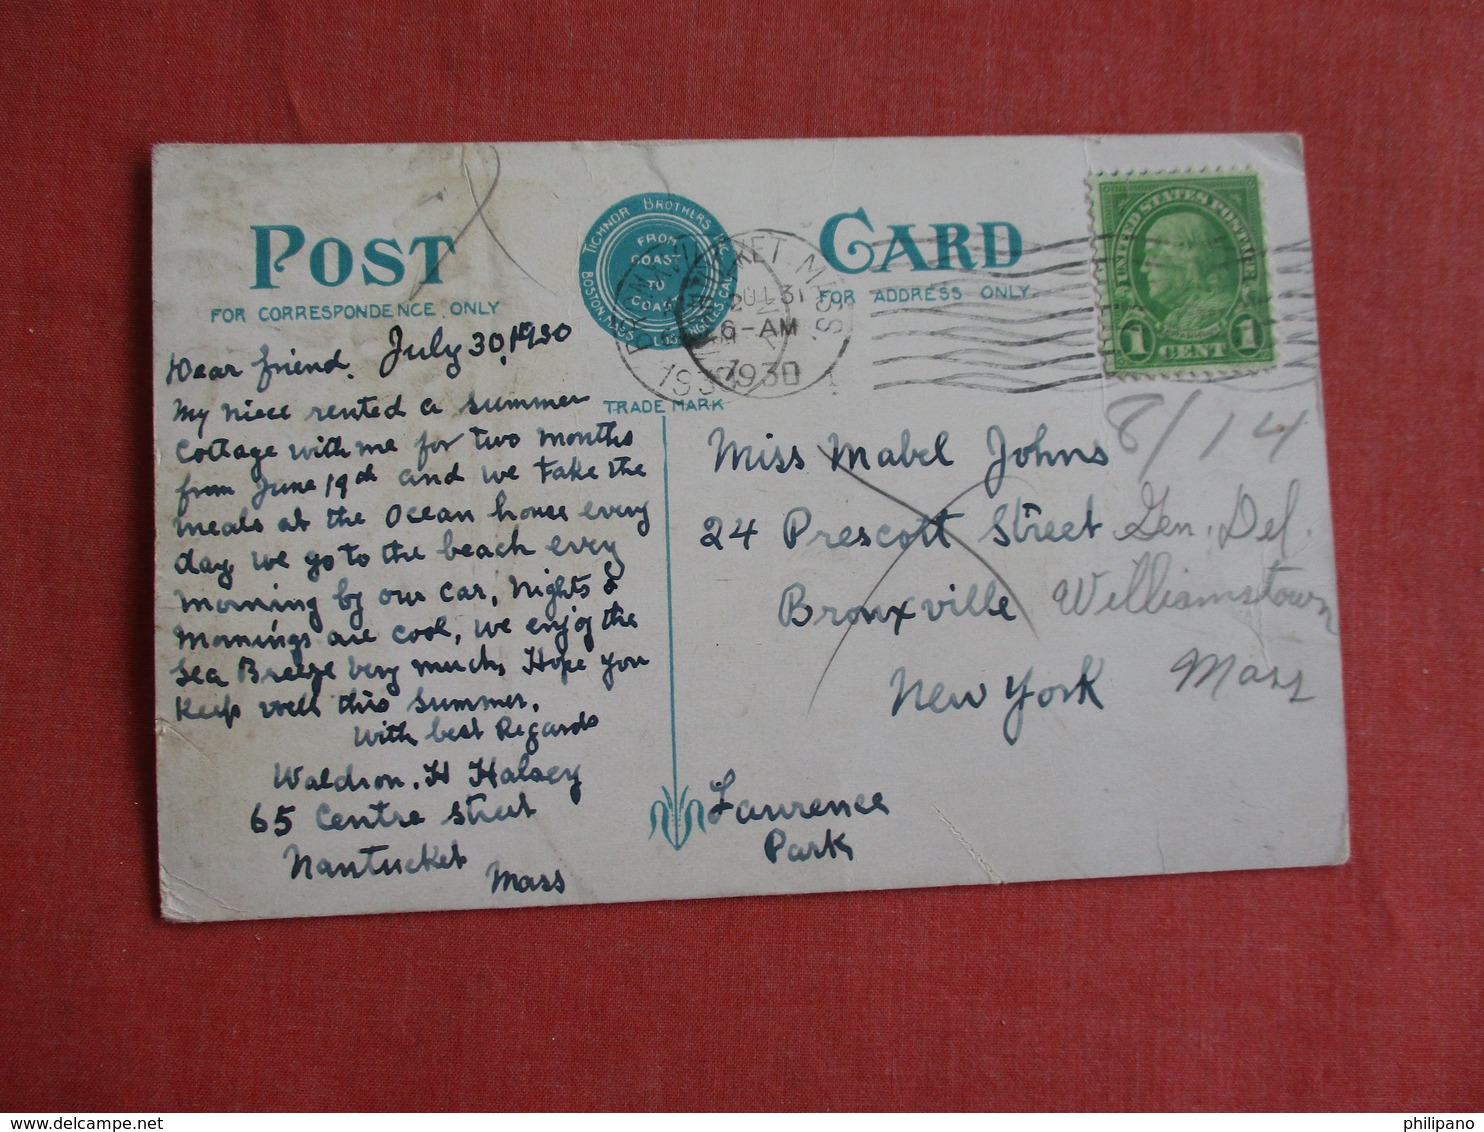 POST CARD
TICHNOR BROTHERS
BOSTON MASS. LOS ANGELES CAL.
FROM
COAST
TO
COAST
TRADE MARK
FOR CORRESPONDENCE ONLY
FOR ADDRESS ONLY
NANTUCKET MASS.
JUL 31
6-AM
1930
UNITED STATES POSTAGE
1 CENT 1
July 30, 1930
Dear friend.
My niece rented a summer
Cottage with me for two months
from June 19th and we take the
meals at the Ocean house every
day we go to the beach every
morning by our car, Nights &
Mornings are cool, we enjoy the
Sea Breeze very much, Hope you
Keep well this summer.
With best Regards
Waldron. H Halsey
65 Centre Street
Nantucket
Mass
Miss Mabel Johns
24 Prescott Street
Bronxville
New York
Lawrence
Park
8/14
Gen. Del.
Williamstown
Mass
delcampe.net
philipano